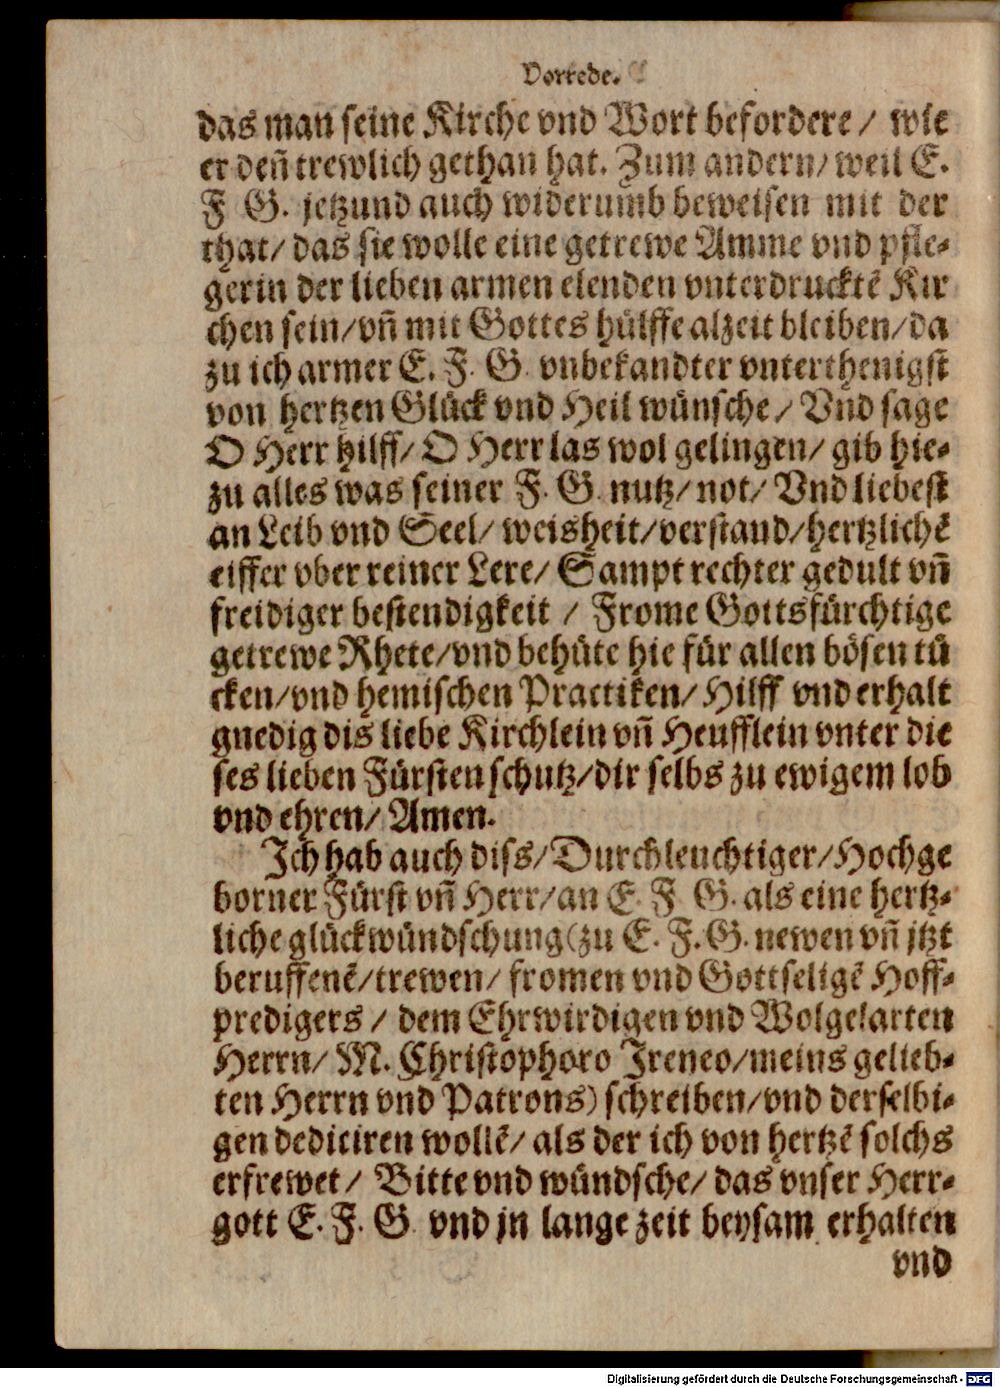 Vorrede.
das man seine Kirche vnd Wort befordere / wie
er deñ trewlich gethan hat. Zum andern/ weil E.
F G. jetzund auch widerumb beweisen mit der
that/ das sie wolle eine getrewe Amme vnd pfle-
gerin der lieben armen elenden vnterdrucktē Kir
chen sein/vñ mit Gottes hülffe alzeit bleiben/da
zu ich armer E. F. G. vnbekandter vnterthenigst
von hertzen Glück vnd Heil wünsche/ Vnd sage
O Herr hilff/ O Herr las wol gelingen/ gib hie-
zu alles was seiner F. G. nutz/not/ Vnd liebest
an Leib vnd Seel/ weisheit/verstand/hertzlichē
eiffer vber reiner Lere/ Sampt rechter gedult vñ
freidiger bestendigkeit / Frome Gottsfürchtige
getrewe Rhete/vnd behüte hie für allen bösen tü
cken/vnd hemischen Practiken/ Hilff vnd erhalt
gnedig dis liebe Kirchlein vñ Heufflein vnter die
ses lieben Fürsten schutz/dir selbs zu ewigem lob
vnd ehren/ Amen.
Ich hab auch diss/Durchleuchtiger/Hochge
borner Fürst vñ Herr/an E. F G. als eine hertz-
liche glückwündschung(zu E. F. G. newen vñ jtzt
beruffenē/trewen/ fromen vnd Gottseligē Hoff-
predigers / dem Ehrwirdigen vnd Wolgelarten
Herrn/ M. Christophoro Ireneo/meins gelieb-
ten Herrn vnd Patrons) schreiben/vnd derselbi-
gen dediciren wollē/ als der ich von hertzē solchs
erfrewet/ Bitte vnd wündsche/ das vnser Herr-
gott E. F. G. vnd jn lange zeit beysam erhalten
vnd
Digitalisierung gefördert durch die Deutsche Forschungsgemeinschaft - DFG